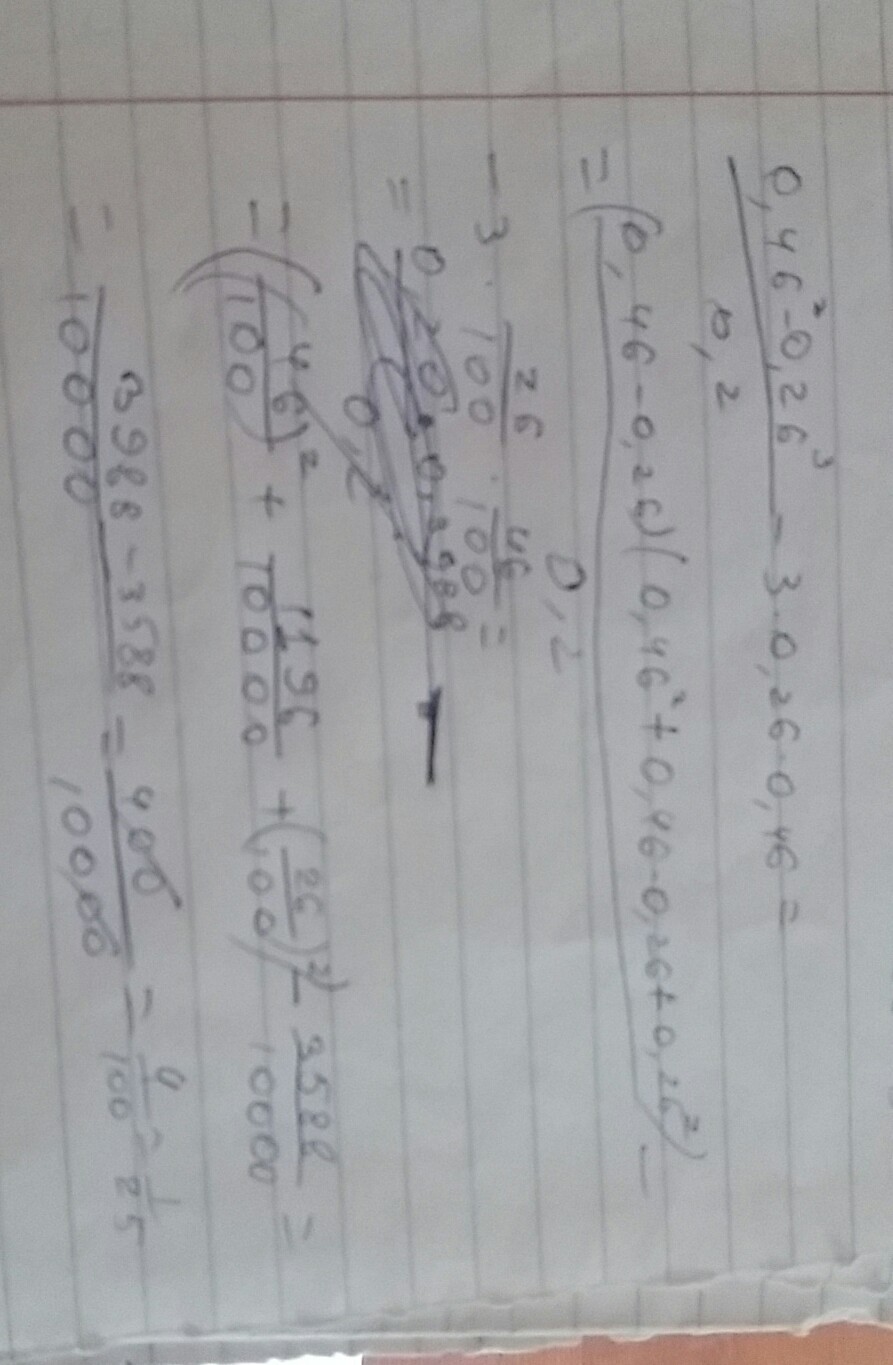 0,46² - 0,26³ / 0,2 - 3·0,26·0,46 =
= (0,46 - 0,26)(0,46² + 0,46·0,26 + 0,26²) / 0,2 -
- 3 · 26/100 · 46/100 =
=
= (46/100)² + 1196/10000 + (26/100)² - 3588/10000 =
= 3988 - 3588 / 10000 = 400/10000 = 4/100 = 1/25